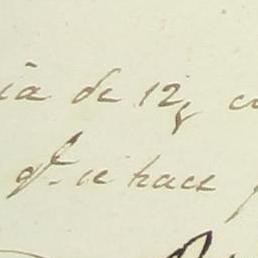 ia de 12 co
q.e se hace